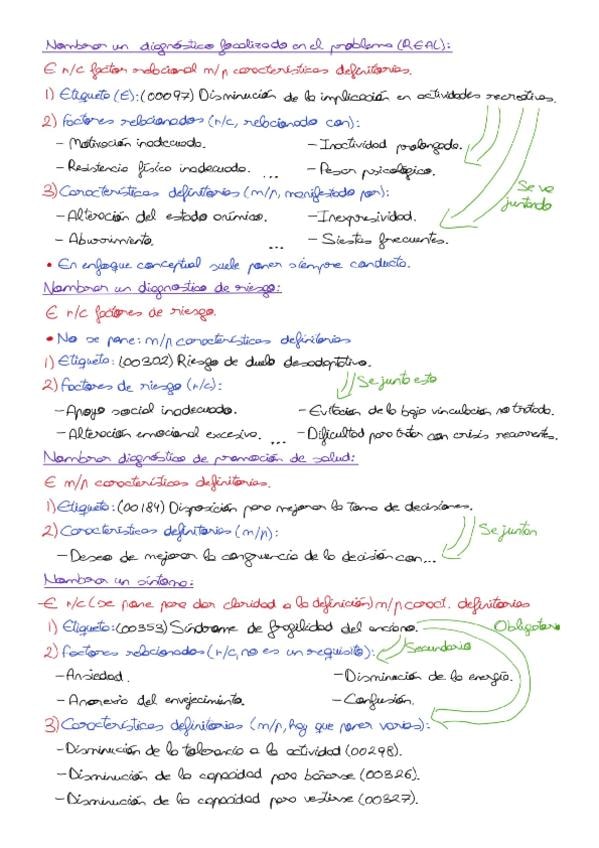 Nombrar un diagnóstico focalizado en el problema (REAL):
E r/c factor relacional m/p características definitorias.
1) Etiqueta (E): (00097) Disminución de la implicación en actividades recreativas.
2) Factores relacionados (r/c, relacionado con):
- Motivación inadecuada. - Inactividad prolongada.
- Resistencia física inadecuada. ... - Pesar psicológico.
Se va juntando
3) Características definitorias (m/p, manifestado por):
- Alteración del estado anímico. - Inexpresividad.
- Aburrimiento. ... - Siestas frecuentes.
• En enfoque conceptual suele poner siempre conducta.
Nombrar un diagnostico de riesgo:
E r/c factores de riesgo.
• No se pone: m/p características definitorias
1) Etiqueta: (00302) Riesgo de duelo desadaptativo.
2) Factores de riesgo (r/c): Se junta esto
- Apoyo social inadecuado. - Evitación de la baja vinculación no tratada.
- Alteración emocional excesiva. ... - Dificultad para tratar con crisis recurrentes.
Nombrar diagnóstico de promoción de salud:
E m/p características definitorias.
1) Etiqueta: (00184) Disposición para mejorar la toma de decisiones.
2) Características definitorias (m/p): Se juntan
- Deseo de mejorar la congruencia de la decisión con...
Nombrar un síntoma:
E r/c (se pone para dar claridad a la definición) m/p caract. definitorias
1) Etiqueta: (00353) Síndrome de fragilidad del anciano. Obligatorio
2) Factores relacionados (r/c, no es un requisito): Secundario
- Ansiedad. - Disminución de la energía.
- Anorexia del envejecimiento. - Confusión.
3) Características definitorias (m/p, hay que poner varias):
- Disminución de la tolerancia a la actividad (00298).
- Disminución de la capacidad para bañarse (00326).
- Disminución de la capacidad para vestirse (00327).